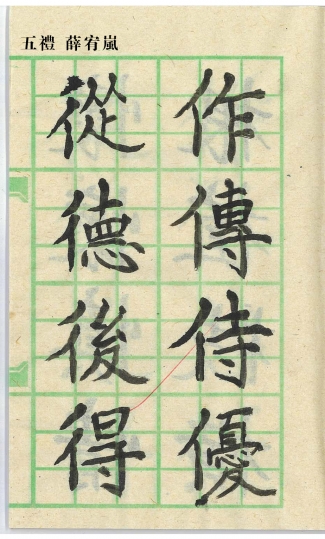 五禮 薛宥嵐
作傳侍優
從德後得